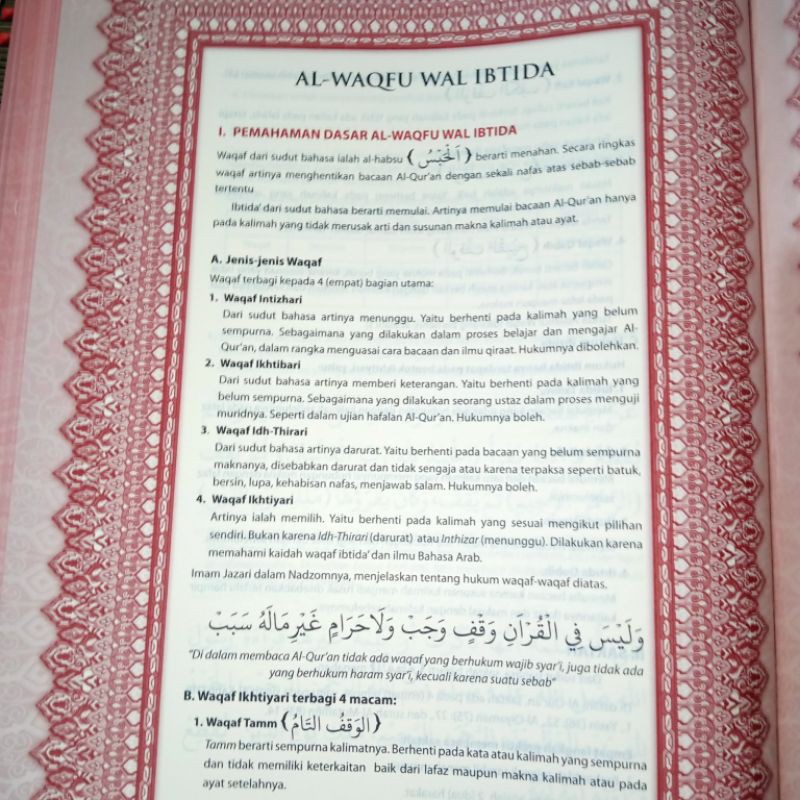 AL-WAQFU WAL IBTIDA
I. PEMAHAMAN DASAR AL-WAQFU WAL IBTIDA
Waqaf dari sudut bahasa ialah al-habsu ﴿ اَلْحَبْسُ ﴾ berarti menahan. Secara ringkas
waqaf artinya menghentikan bacaan Al-Qur'an dengan sekali nafas atas sebab-sebab
tertentu
Ibtida' dari sudut bahasa berarti memulai. Artinya memulai bacaan Al-Qur'an hanya
pada kalimah yang tidak merusak arti dan susunan makna kalimah atau ayat.
A. Jenis-jenis Waqaf
Waqaf terbagi kepada 4 (empat) bagian utama:
1. Waqaf Intizhari
Dari sudut bahasa artinya menunggu. Yaitu berhenti pada kalimah yang belum
sempurna. Sebagaimana yang dilakukan dalam proses belajar dan mengajar Al-
Qur'an, dalam rangka menguasai cara bacaan dan ilmu qiraat. Hukumnya dibolehkan.
2. Waqaf Ikhtibari
Dari sudut bahasa artinya memberi keterangan. Yaitu berhenti pada kalimah yang
belum sempurna. Sebagaimana yang dilakukan seorang ustaz dalam proses menguji
muridnya. Seperti dalam ujian hafalan Al-Qur'an. Hukumnya boleh.
3. Waqaf Idh-Thirari
Dari sudut bahasa artinya darurat. Yaitu berhenti pada bacaan yang belum sempurna
maknanya, disebabkan darurat dan tidak sengaja atau karena terpaksa seperti batuk,
bersin, lupa, kehabisan nafas, menjawab salam. Hukumnya boleh.
4. Waqaf Ikhtiyari
Artinya ialah memilih. Yaitu berhenti pada kalimah yang sesuai mengikut pilihan
sendiri. Bukan karena Idh-Thirari (darurat) atau Inthizar (menunggu). Dilakukan karena
memahami kaidah waqaf ibtida' dan ilmu Bahasa Arab.
Imam Jazari dalam Nadzomnya, menjelaskan tentang hukum waqaf-waqaf diatas.
وَلَيْسَ فِي الْقُرْاٰنِ وَقْفٍ وَجَبْ وَلَاحَرَامٍ غَيْرِمَالَهُ سَبَبْ
"Di dalam membaca Al-Qur'an tidak ada waqaf yang berhukum wajib syar'i, juga tidak ada
yang berhukum haram syar'i, kecuali karena suatu sebab"
B. Waqaf Ikhtiyari terbagi 4 macam:
1. Waqaf Tamm ﴿ اَلْوَقْفُ التَّامُ ﴾
Tamm berarti sempurna kalimatnya. Berhenti pada kata atau kalimah yang sempurna
dan tidak memiliki keterkaitan baik dari lafaz maupun makna kalimah atau pada
ayat setelahnya.